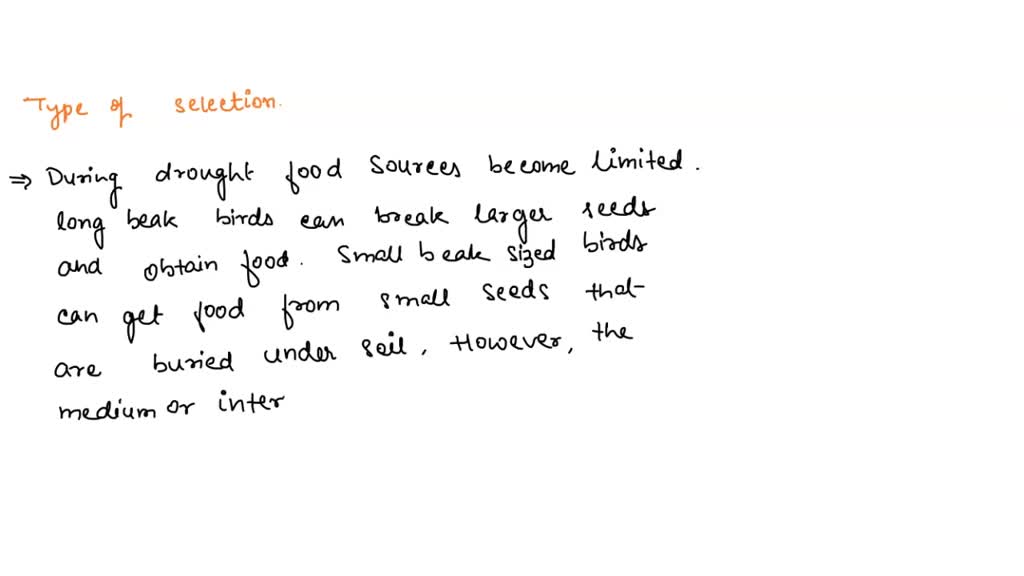 Type of selection.
⇒ During drought food sources become limited.
long beak birds can break larger seeds
and obtain food. Small beak sized birds
can get food from small seeds that
are buried under soil. However, the
medium or inter